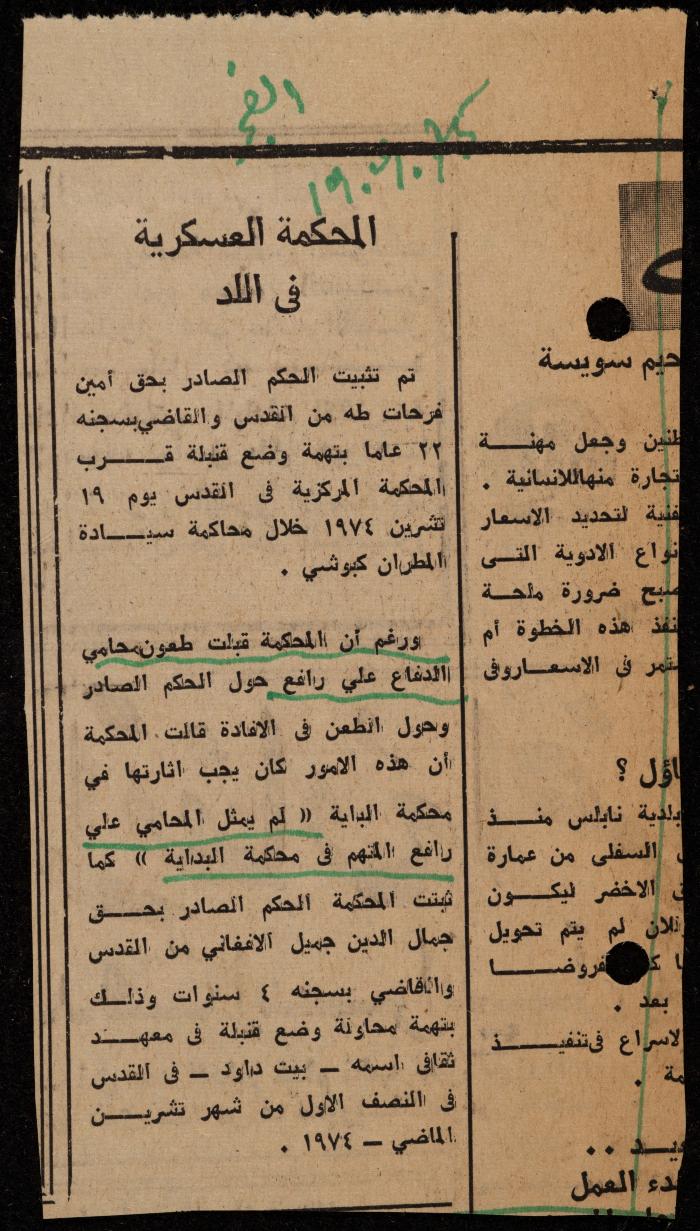 الفجر
المحكمة العسكرية
فى اللد
تم تثبيت الحكم الصادر بحق أمين
فرحات طه من القدس والقاضي بسجنه
٢٢ عاما بتهمة وضع قنبلة قـــرب
المحكمة المركزية فى القدس يوم ١٩
تشرين ١٩٧٤ خلال محاكمة سيـــادة
المطران كبوشي .
ورغم أن المحكمة قبلت طعون محامي
الدفاع علي رافع حول الحكم الصادر
وحول الطعن فى الافادة قالت المحكمة
أن هذه الامور كان يجب اثارتها في
محكمة البداية « لم يمثل المحامي علي
رافع المتهم فى محكمة البداية » كما
ثبتت المحكمة الحكم الصادر بحــق
جمال الدين جميل الافغاني من القدس
والقاضي بسجنه ٤ سنوات وذلــك
بتهمة محاولة وضع قنبلة فى معهــد
ثقافى اسمه ــ بيت داود ــ فى القدس
فى النصف الاول من شهر تشريــن
الماضي ــ ١٩٧٤ .
حيم سويسة
طنين وجعل مهنـــة
تجارة منهاللانسانية .
فنية لتحديد الاسعار
نواع الادوية التــى
صبح ضرورة ملحــة
نفذ هذه الخطوة أم
تمر فى الاسعاروفى
اؤل ؟
بلدية نابلس منــذ
السفلى من عمارة
الاخضر ليكــون
لان لم يتم تحويل
فروضـــا
بعد .
لاسراع فىتنفيــذ
مة .
يــد ..
دء العمل